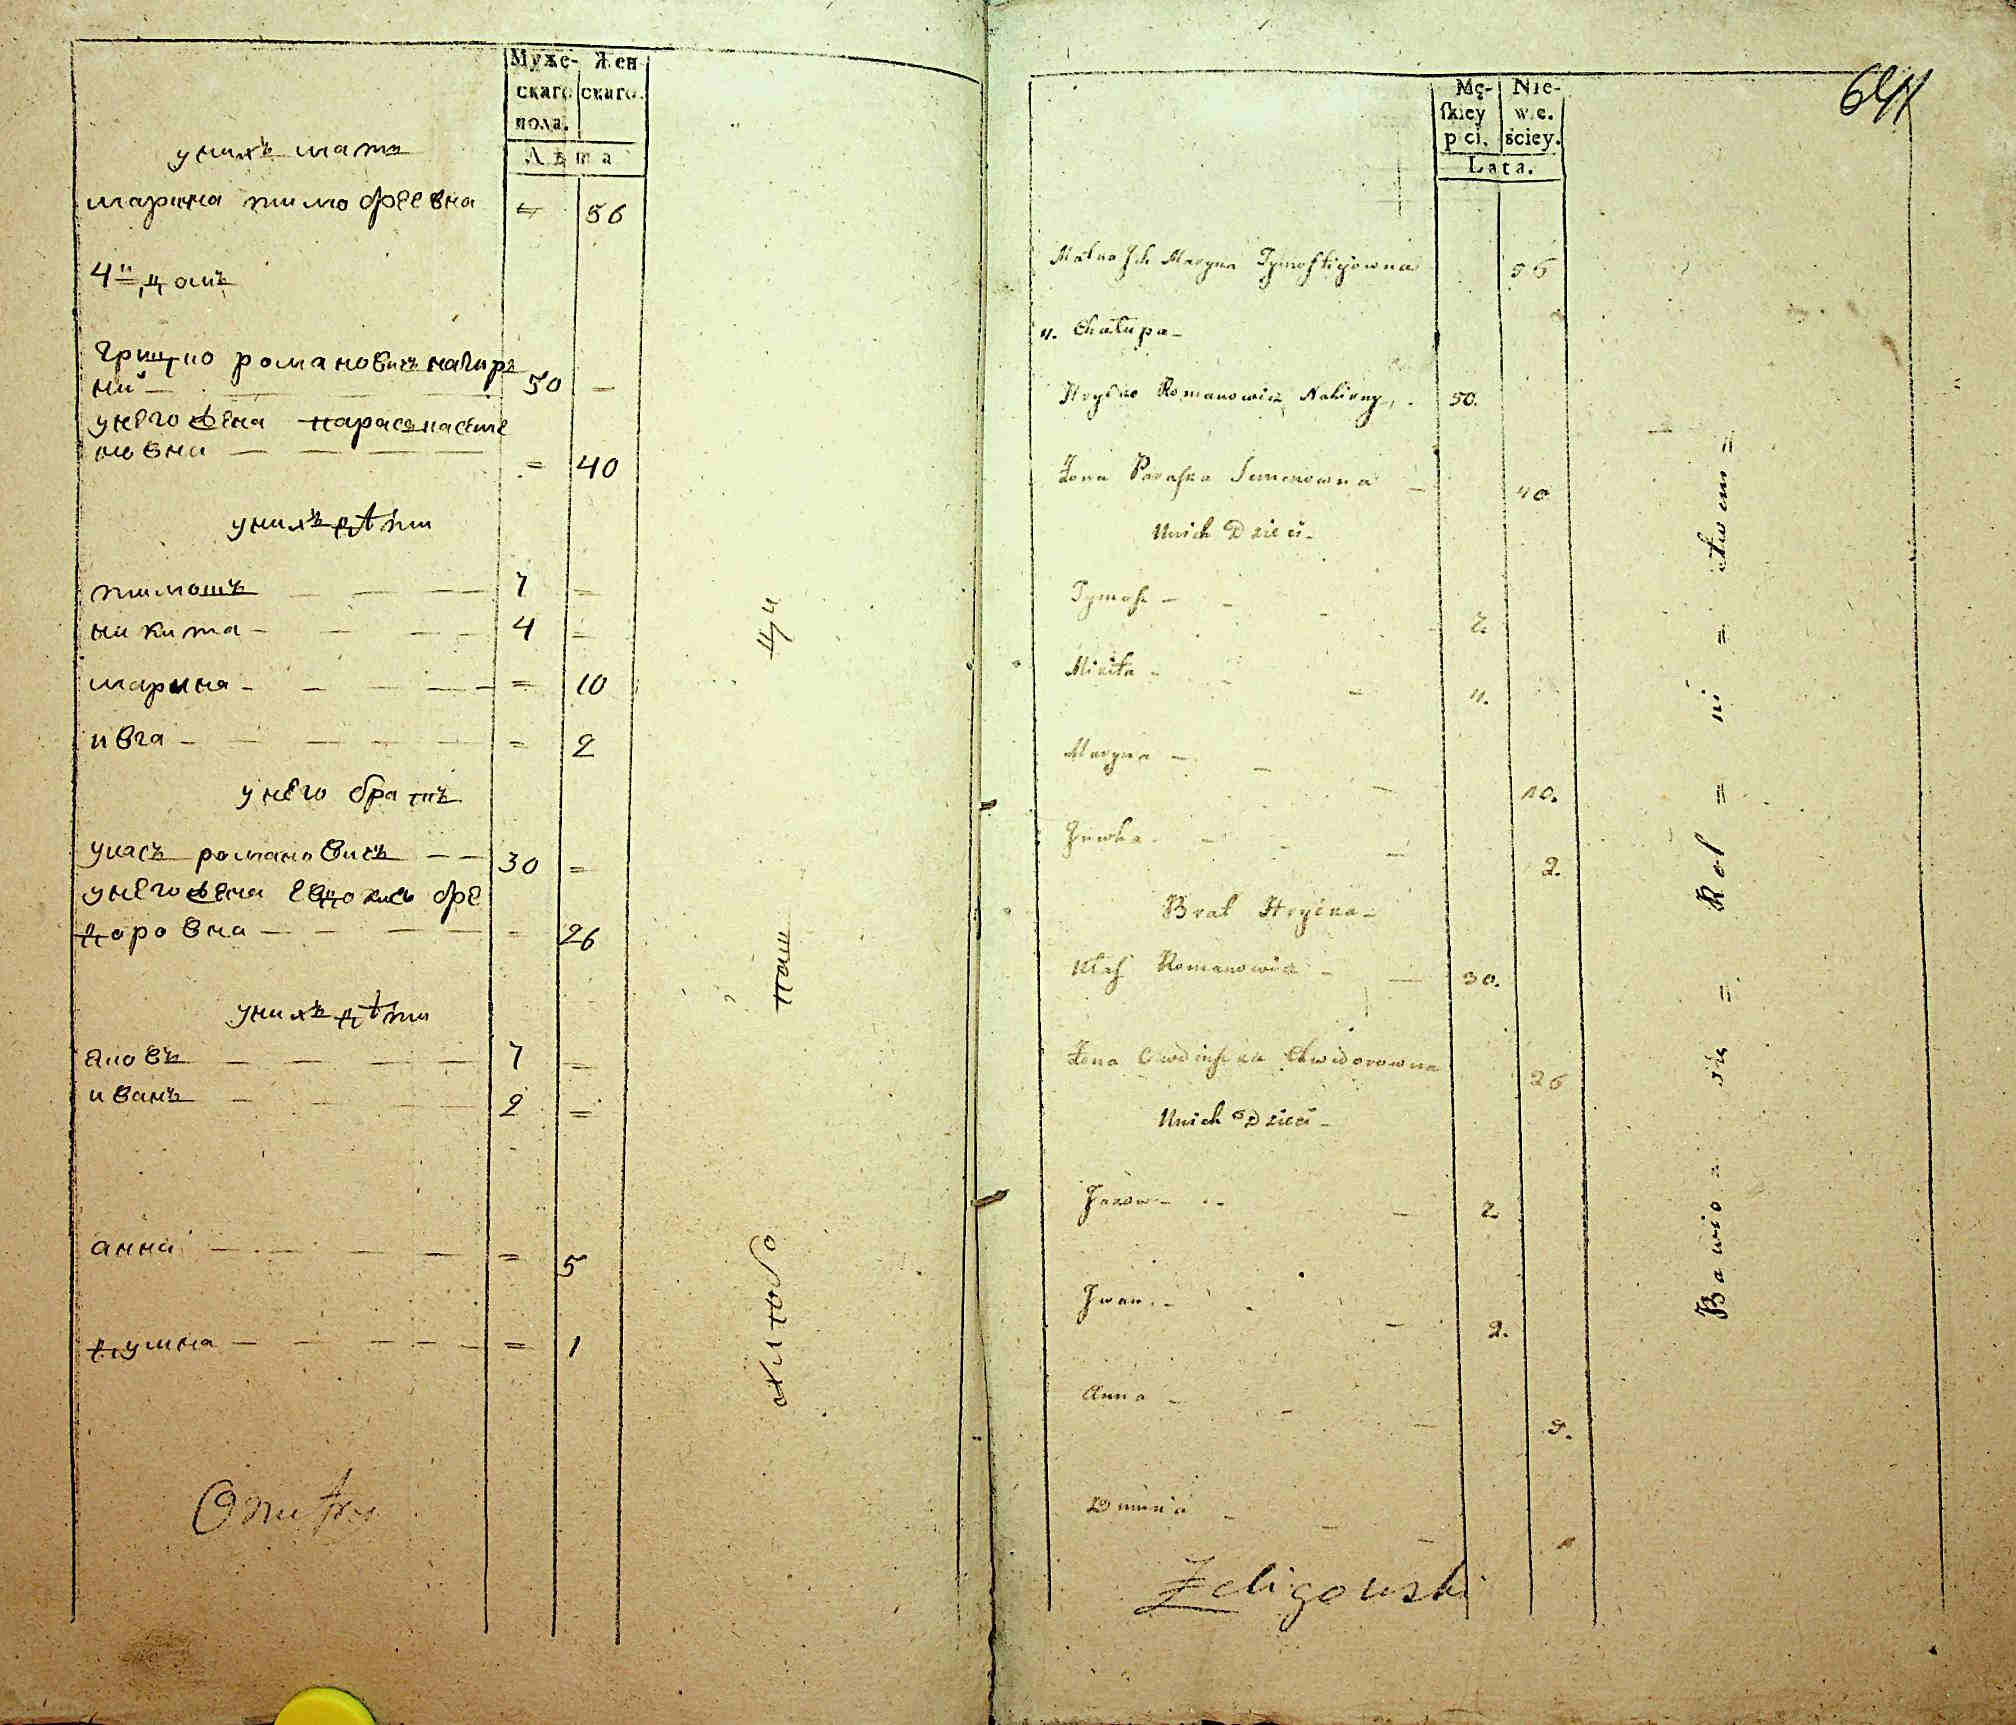 Муже-
скаго
пола.
Жен
скаго.
Лѣта
унихъ мать
марина тимофеевна = 56
4й домъ
грицко романовичъ нагир
ний — 50 —
унего жена параска семе
новна — — — — = 40
унихъ дѣти
тимошъ — — — 7 =
никита — — — 4 =
марина — — — = 10
ивга — — — = 2
унего братъ
уласъ романовичъ — — 30 =
унего жена евдокия фе
доровна — — — — = 26
унихъ дѣти
яковъ — — — 7 =
иванъ — — — 2 =
анна — — — = 5
думна — — — = 1
641
Mę-
skiey
pci.
Nie-
wie.
ściey.
Lata.
Matka Ich Maryna Tymofieijowna 56
4. Chałupa —
Hryćko Romanowicz Nahirny, . 50.
Żona Paraska Semenowna — 40
Unich Dzieci —
Tymosz — — — 7.
Mikita — — — 4.
Maryna — — — 10.
Jewha — — — 2.
Brat Hrycka —
Ułas Romanowicz — — 30.
Żona Chwidorowna 26
Unich Dzieci —
Jakow — — — 7.
Iwan — — — 2.
Anna — — — 5.
Dumna — — — 1
Żeligowski